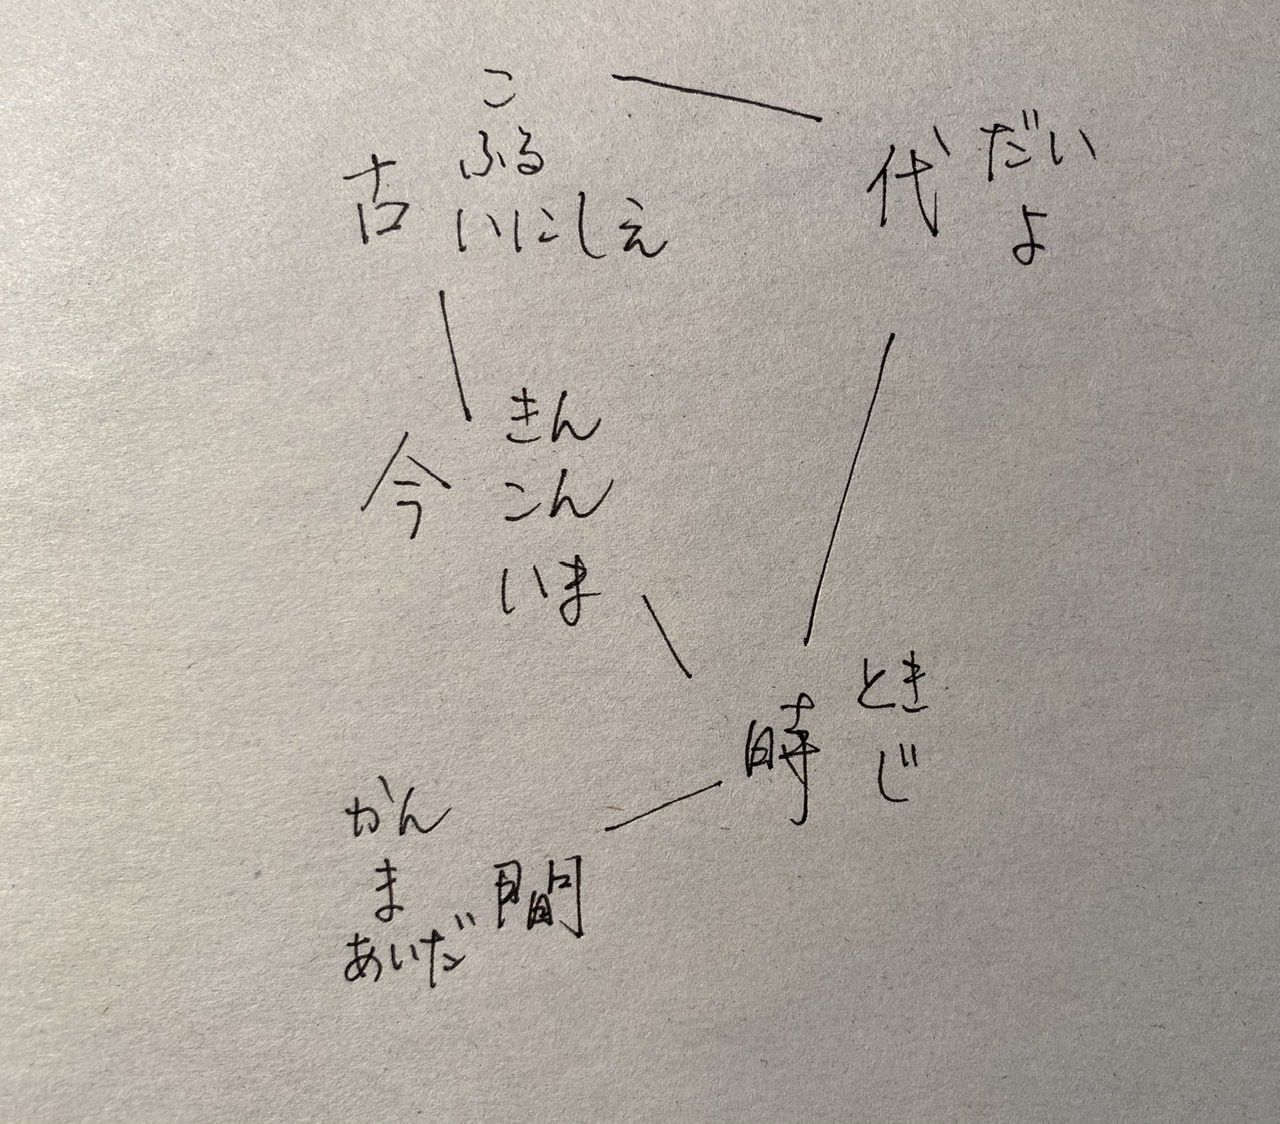 こ
ふる
古 いにしえ
代 だい
よ
きん
今 こん
いま
とき
時 じ
かん
ま 間
あいだ